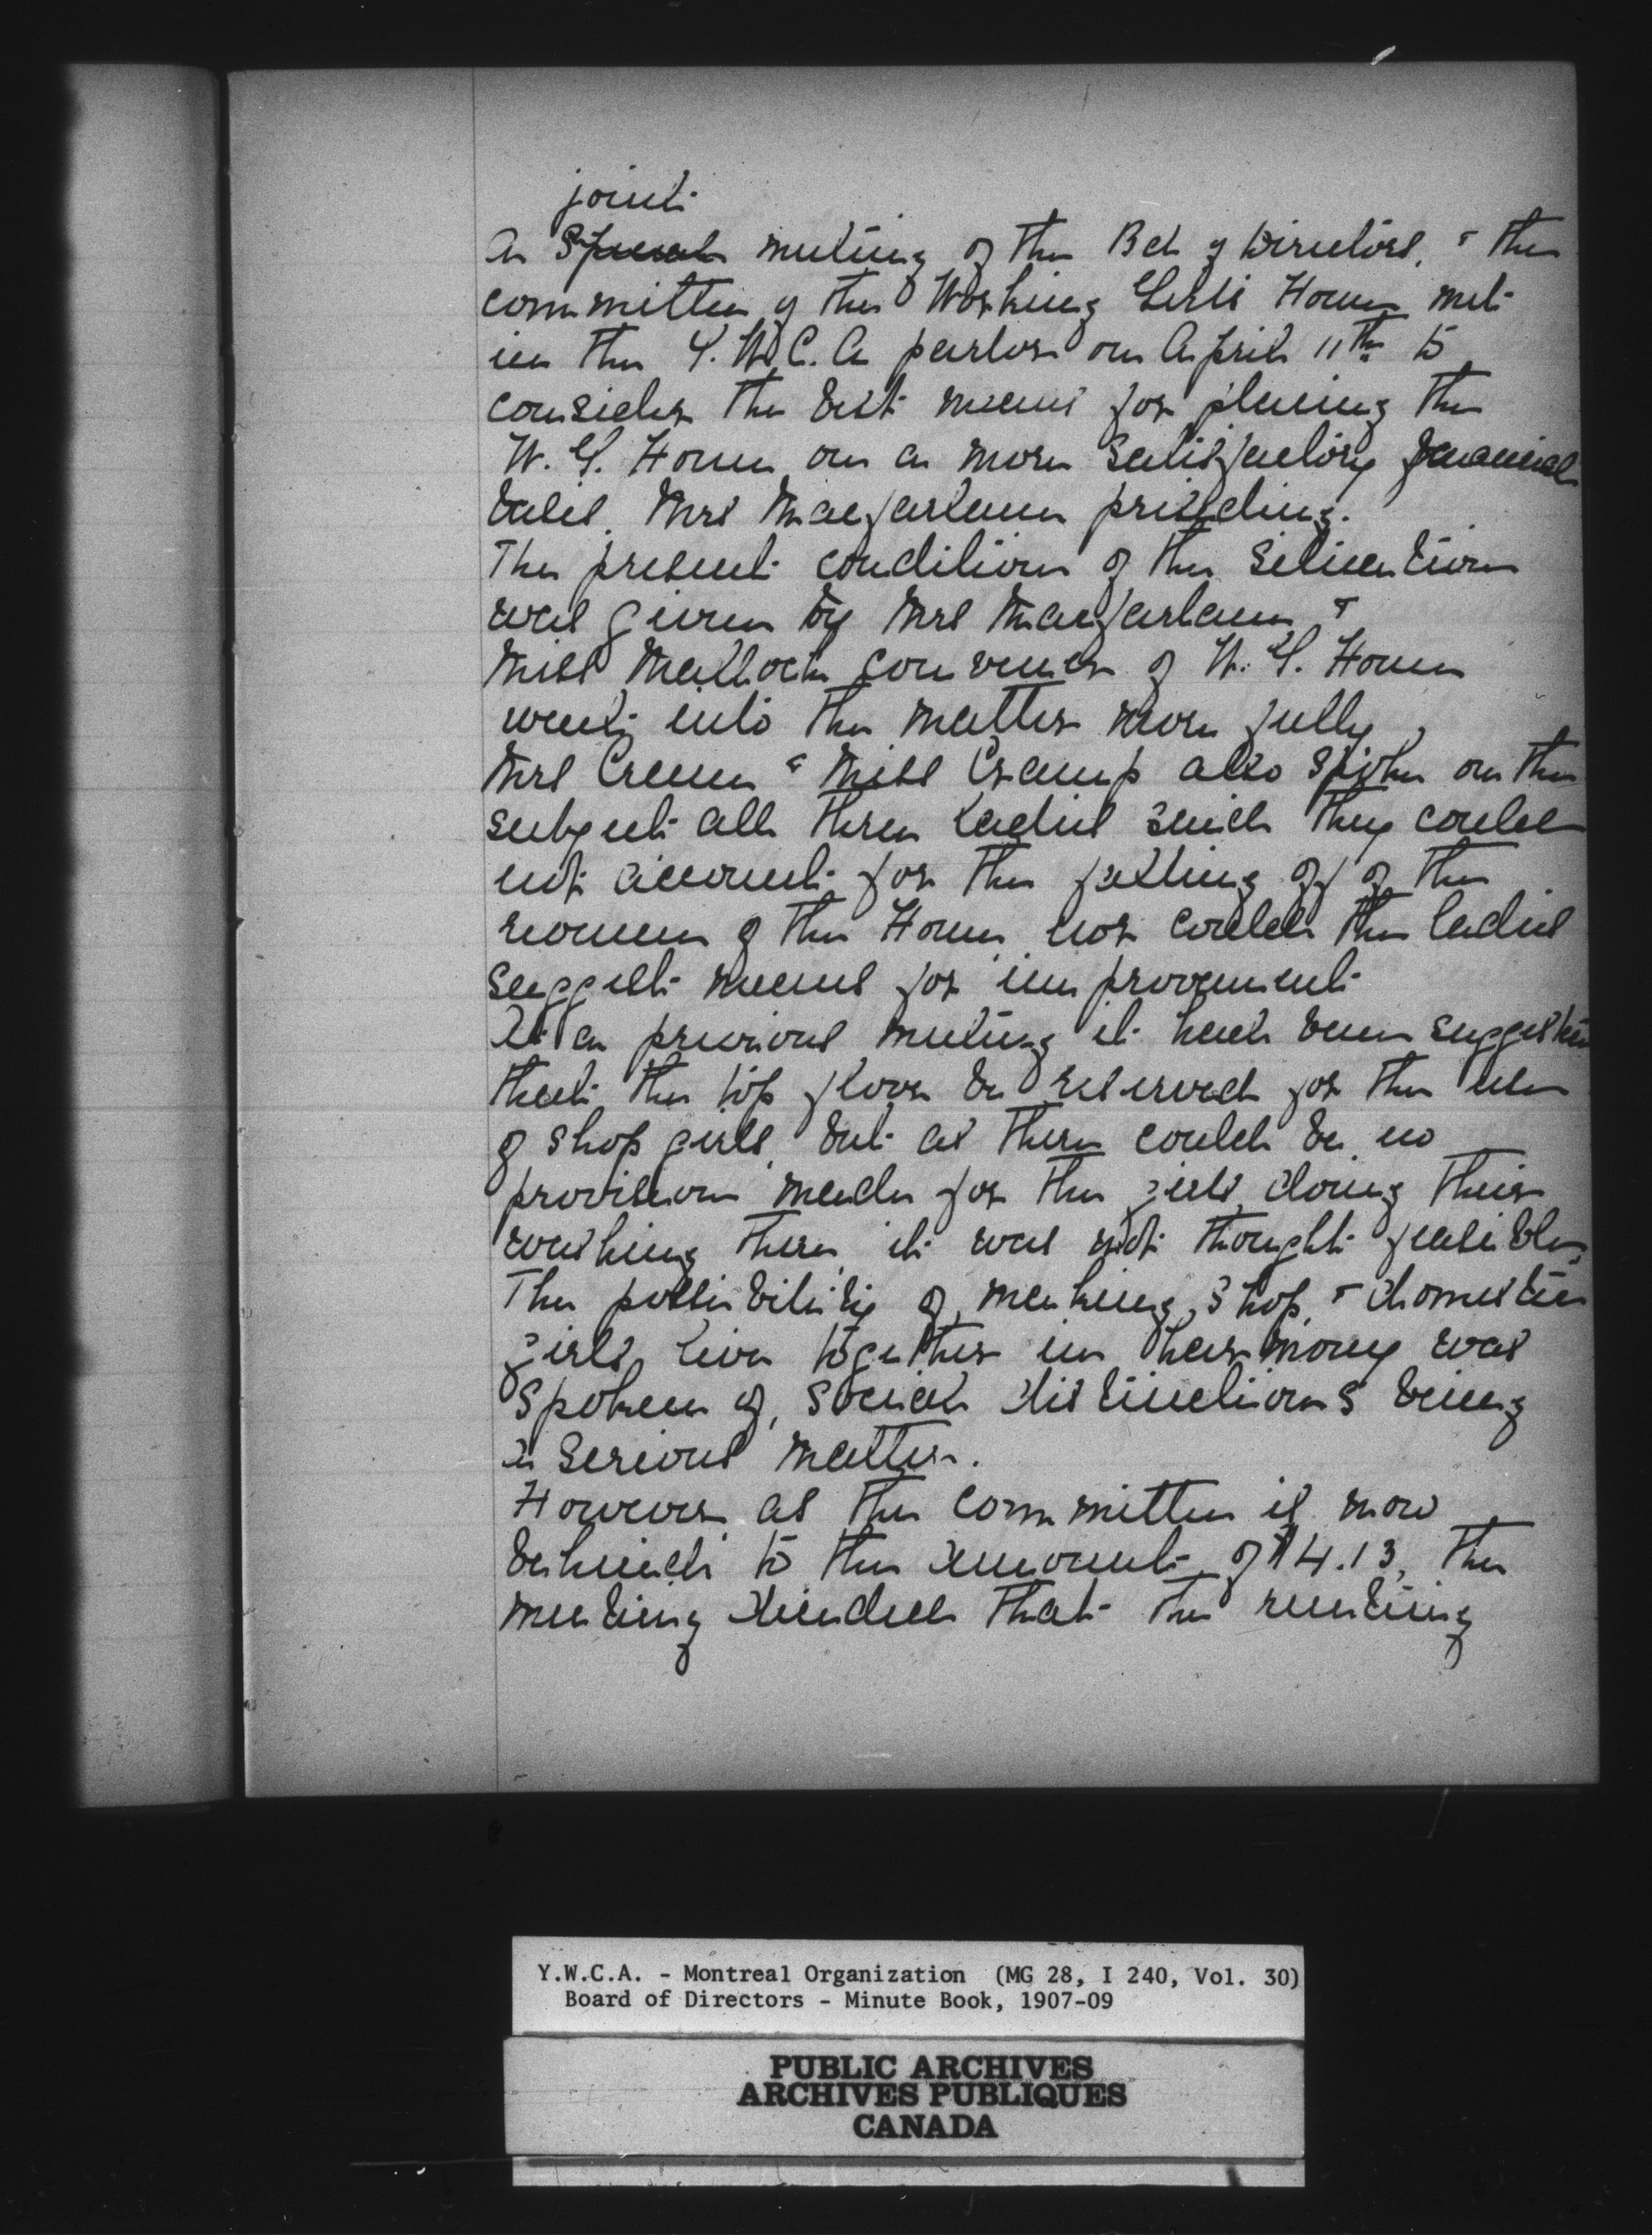 joint
A Special meeting of the Bd of Directors, & the
committee of the Working Girls Home met
in the Y.W.C.A parlor on April 11th to
consider the best means for placing the
W. G. Home on a more satisfactory financial
basis. Mrs Macfarlane presiding.
The present condition of the situation
was given by Mrs Macfarlane &
Miss convener of W. G. Home
went into the matter more fully
Mrs & Miss Cramp also spoke on the
subject all three ladies said they could
not account for the falling off of the
women of the Home, nor could the ladies
suggest means for improvement
At a previous meeting it had been suggested
that the top floor be reserved for the use
of shop girls, but as there could be no
provision made for the girls doing their
washing there, it was not thought feasible,
The possibility of making, shop, & domestic
girls, live together in harmony was
spoken of, social distinctions being
a serious matter.
However as the committee is now
behind to the amount of $14.13, the
meeting that the renting
Y.W.C.A. - Montreal Organization (MG 28, I 240, Vol. 30)
Board of Directors - Minute Book, 1907-09
PUBLIC ARCHIVES
ARCHIVES PUBLIQUES
CANADA